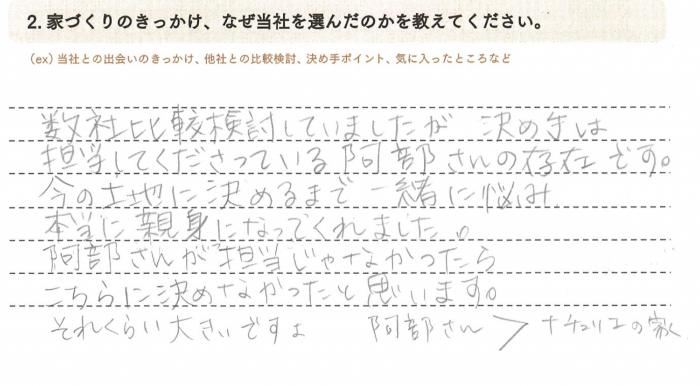 2. 家づくりのきっかけ、なぜ当社を選んだのかを教えてください。
（ex）当社との出会いのきっかけ、他社との比較検討、決め手ポイント、気に入ったところなど
数社比較検討していましたが 決め手は
担当してくださっている阿部さんの存在です。
今の土地に決めるまで一緒に悩み
本当に親身になってくれました。
阿部さんが担当じゃなかったら
こちらに決めなかったと思います。
それくらい大きいですよ 阿部さん ＞ ナチュリエの家